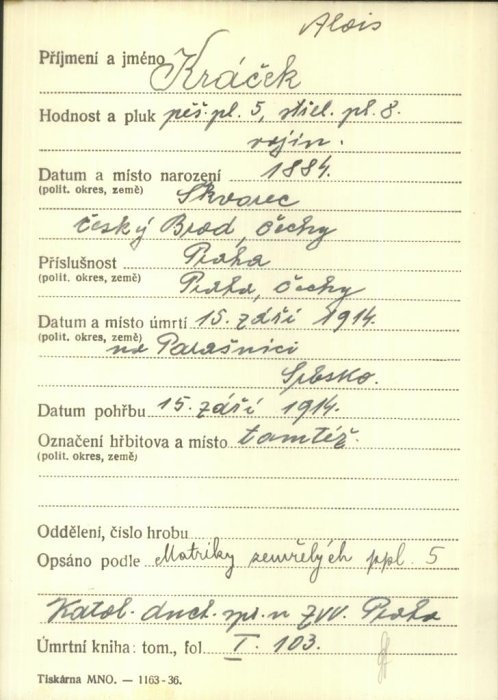 Alois
Příjmení a jméno Kráček
Hodnost a pluk pěš. pl. 5, střel. pl. 8.
vojín.
Datum a místo narození 1884.
(polit. okres, země) Škvorec
český Brod, čechy
Příslušnost Praha
(polit. okres, země) Praha, čechy
Datum a místo úmrtí 15. září 1914.
(polit. okres, země) na Parašnici
Srbsko.
Datum pohřbu 15. září 1914.
Označení hřbitova a místo tamtéž.
(polit. okres, země)
Oddělení, číslo hrobu
Opsáno podle Matriky zemřelých ppl. 5
Katol. duch. spr. u ZVV. Praha
Úmrtní kniha: tom., fol I. 103.
Tiskárna MNO. — 1163-36.